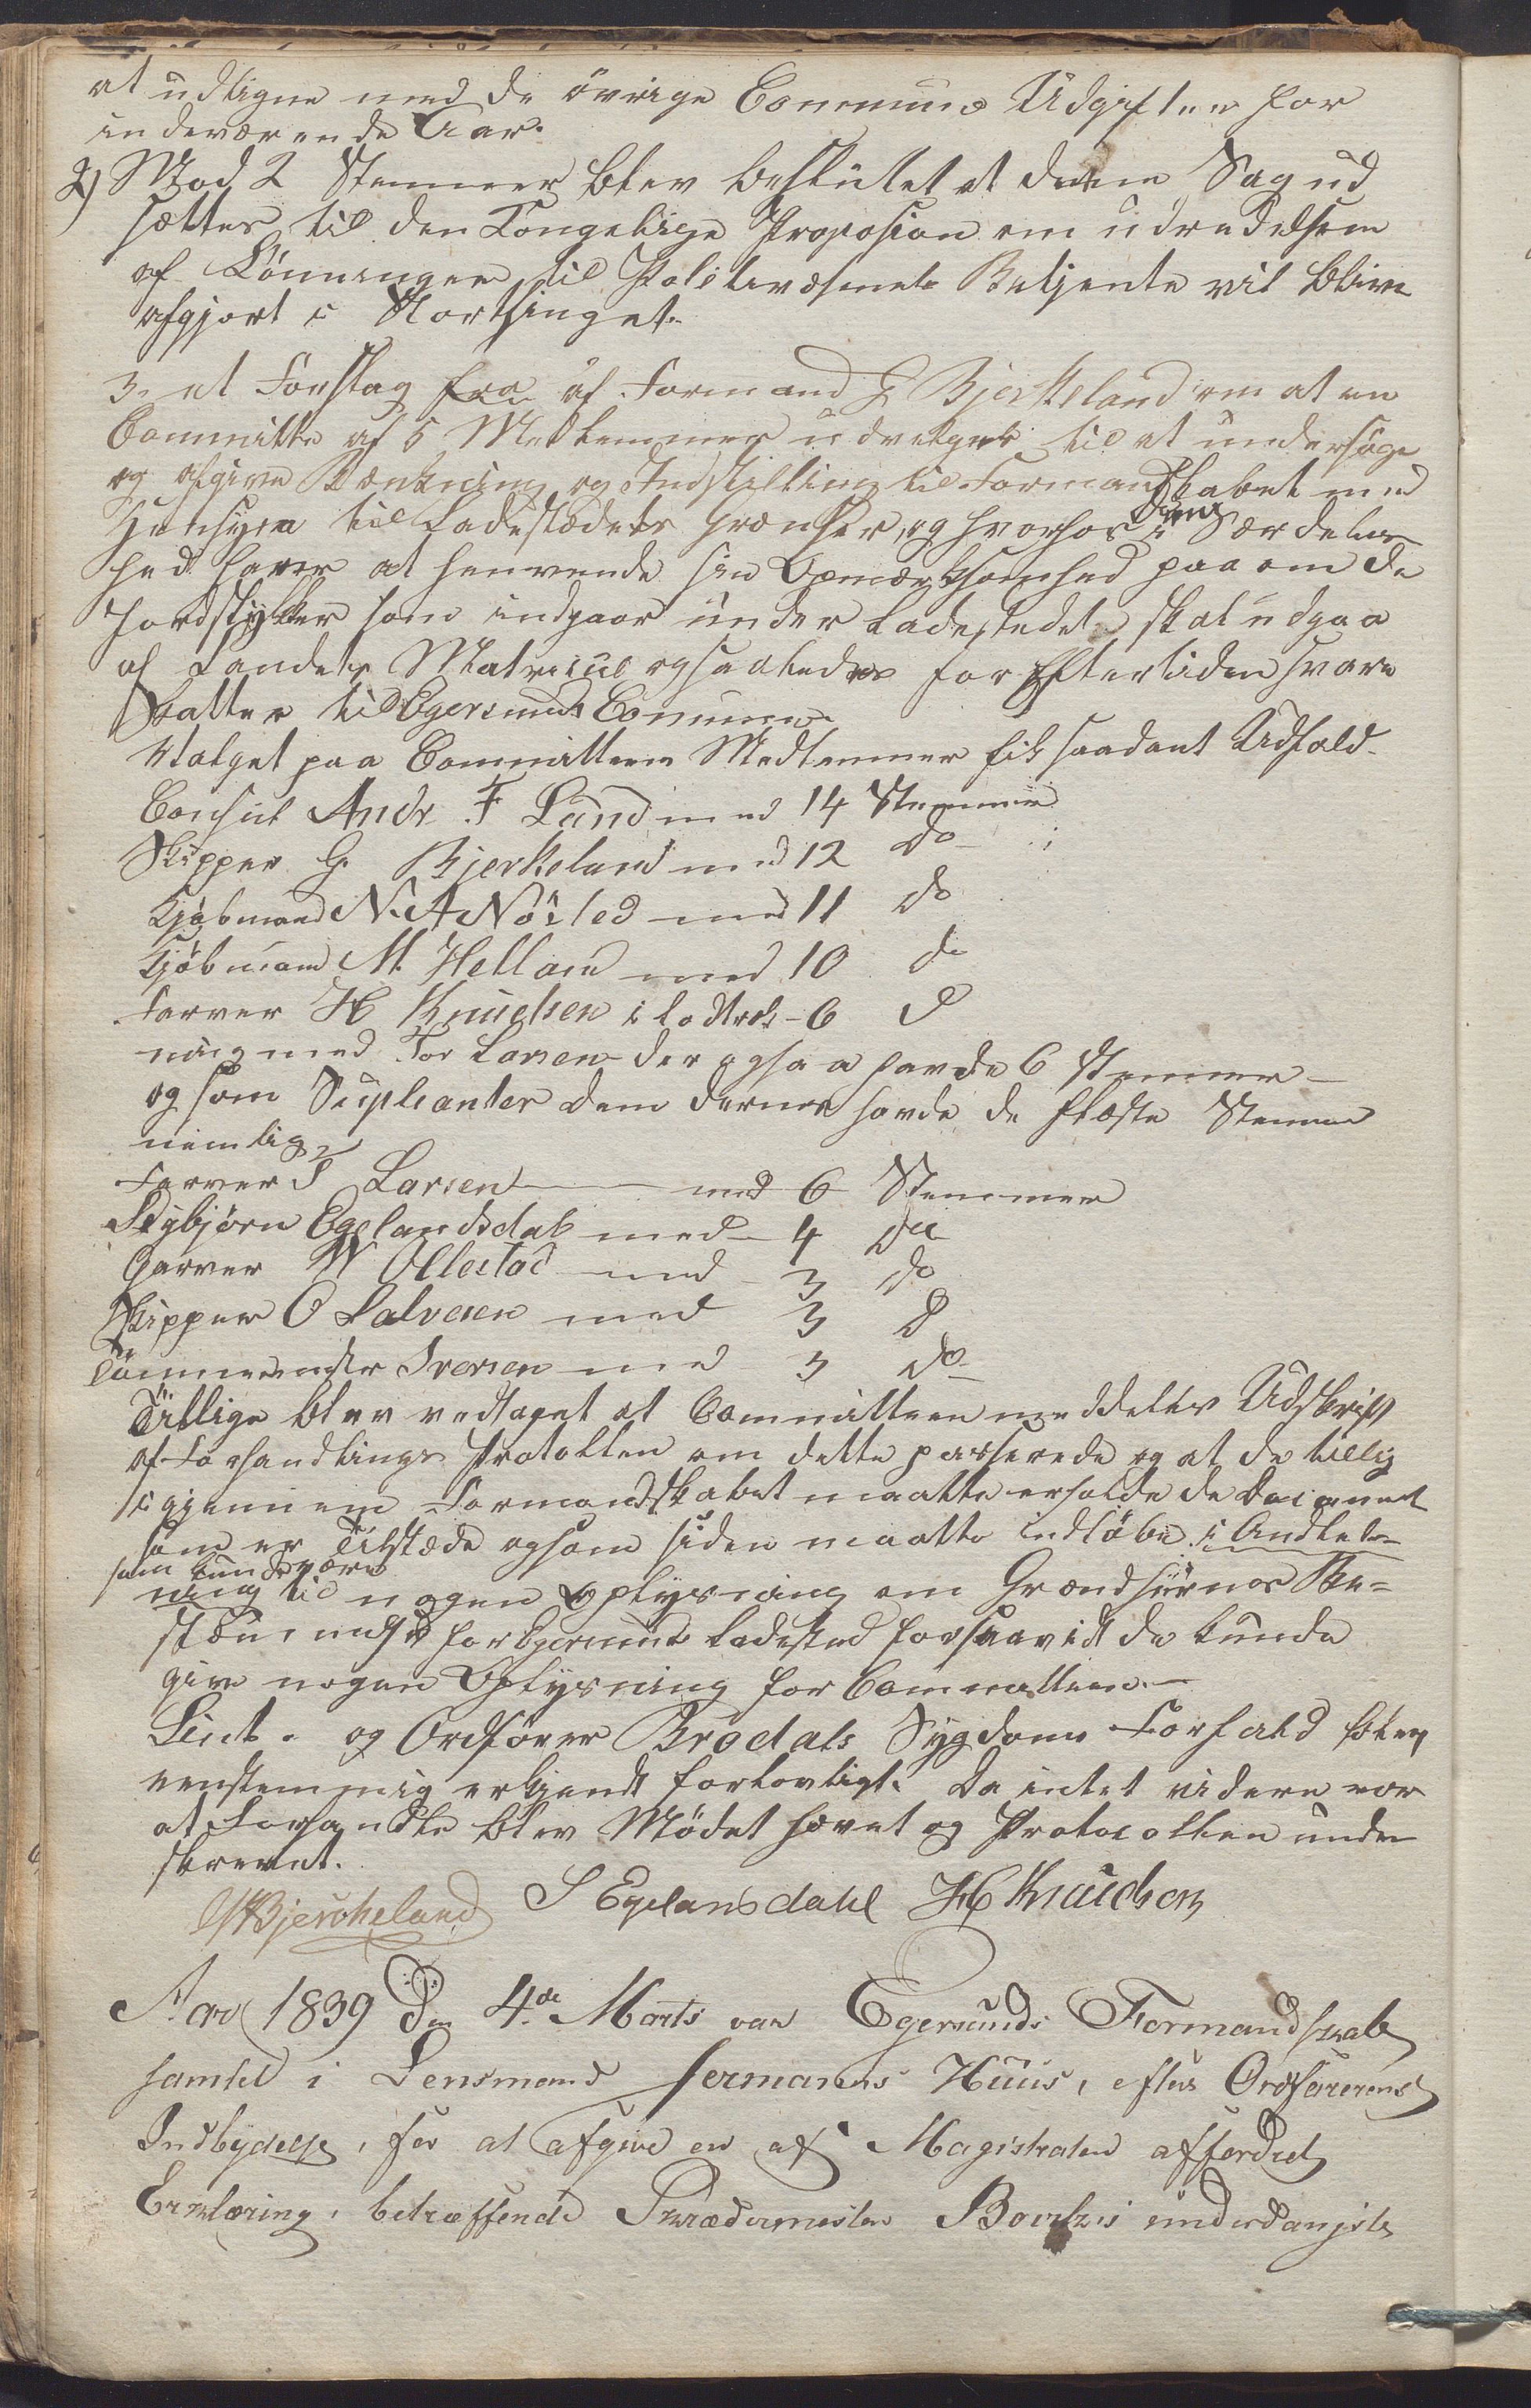 at udligne med de övrige Communs Udgifter for
indeværende Aar.
2) Mod 2 Stemmer blev besluttet at denne Sag ud
sættes til den Kongelige Proposion om udredelsen
af Lönninger til Politivæsenets Betjente vil blive
afgjort i Storthinget.
3. et Forslag fra af Formand G Bjerkeland om at en
Committe af 5 Medlemmer udvælges til at undersöge
og afgive Betænkning og Indstilling til Formandskabet med
Hensyn til Ladestædets Grænser, og hvorhos i Særdeles
hed haver at henvende sin Opmærksomhed paa om de
Jordstykker som indgaar under Ladestedet skal udgaa
af Landets Matricul ogsaaledes for Eftertiden svare
Skatter til Egersunds Commune.
Valget paa Committeens Medlemmer fik saadant Udfald.
Consul Andr. F Lund med 14 Stemmer
Skipper G. Bjerkeland med 12 do
Kjöbmand N. A Nörsted med 11 do
Kjöbmand M. Hellan med 10 do
Farver H Knudsen i lodtræk- 6 d
ning med Tor Larsen der ogsaa havde 6 Stemmer
og som Suplianter dem dernæst havde de flæste Stemmer
nemlig
Farver T Larsen med 6 Stemmer
Sigbjørn Egelandsdal med 4 do
Garver W Ollestad med 3 do
Skipper O Salvesen med 3 d
Tömmermester Iversen med 3 do
Tillige blev vedtaget at Committeen meddeles Udskrift
af Forhandlings Protokllen om dette passerede og at de tillig
igjennem Formandskabet maatte erholde de Document
som er Tilstæde ogsom siden maatte indløbe i Andled-
som kunde være
ning til nogen oplysning om Grændserne Be-
stemmelse for Egersunds Ladested forsaavidt de kunde
give nogen Oplysning for Committeen.
Lieut. og Ordförer Brodals Sygdoms Forfald blev
eenstemmig erkjendt forlovligt. Da intet videre var
at Forhandle blev Mödet hævet og Protocollen under
skrevet.
G Bjerckeland S Egelansdahl H Knudsen
Aar 1839 den 4de Marts var Egersunds Formandskab
samlet i Lensmand Hermanns Huus, efter Ordførerens
Indbydelse, for at afgive en af Magistraten affordret
Erklæring, betræffende Skrædermester underdanigste